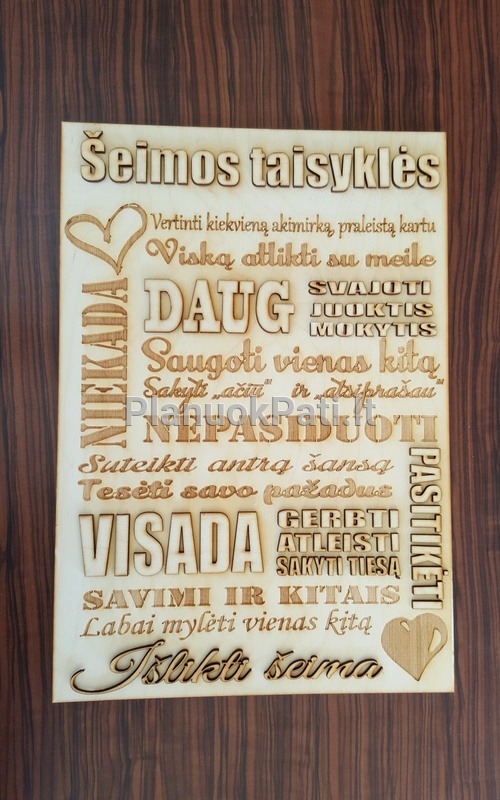 Šeimos taisyklės
Vertinti kiekvieną akimirką, praleistą kartu
Viską atlikti su meile
DAUG
SVAJOTI
JUOKTIS
MOKYTIS
Saugoti vienas kitą
Sakyti „ačiū“ ir „atsiprašau“
PlanuokPati.lt
NIEKADA
NEPASIDUOTI
Suteikti antrą šansą
Tesėti savo pažadus
VISADA
GERBTI
ATLEISTI
SAKYTI TIESĄ
PASITIKĖTI
SAVIMI IR KITAIS
Labai mylėti vienas kitą
Išlikti šeima